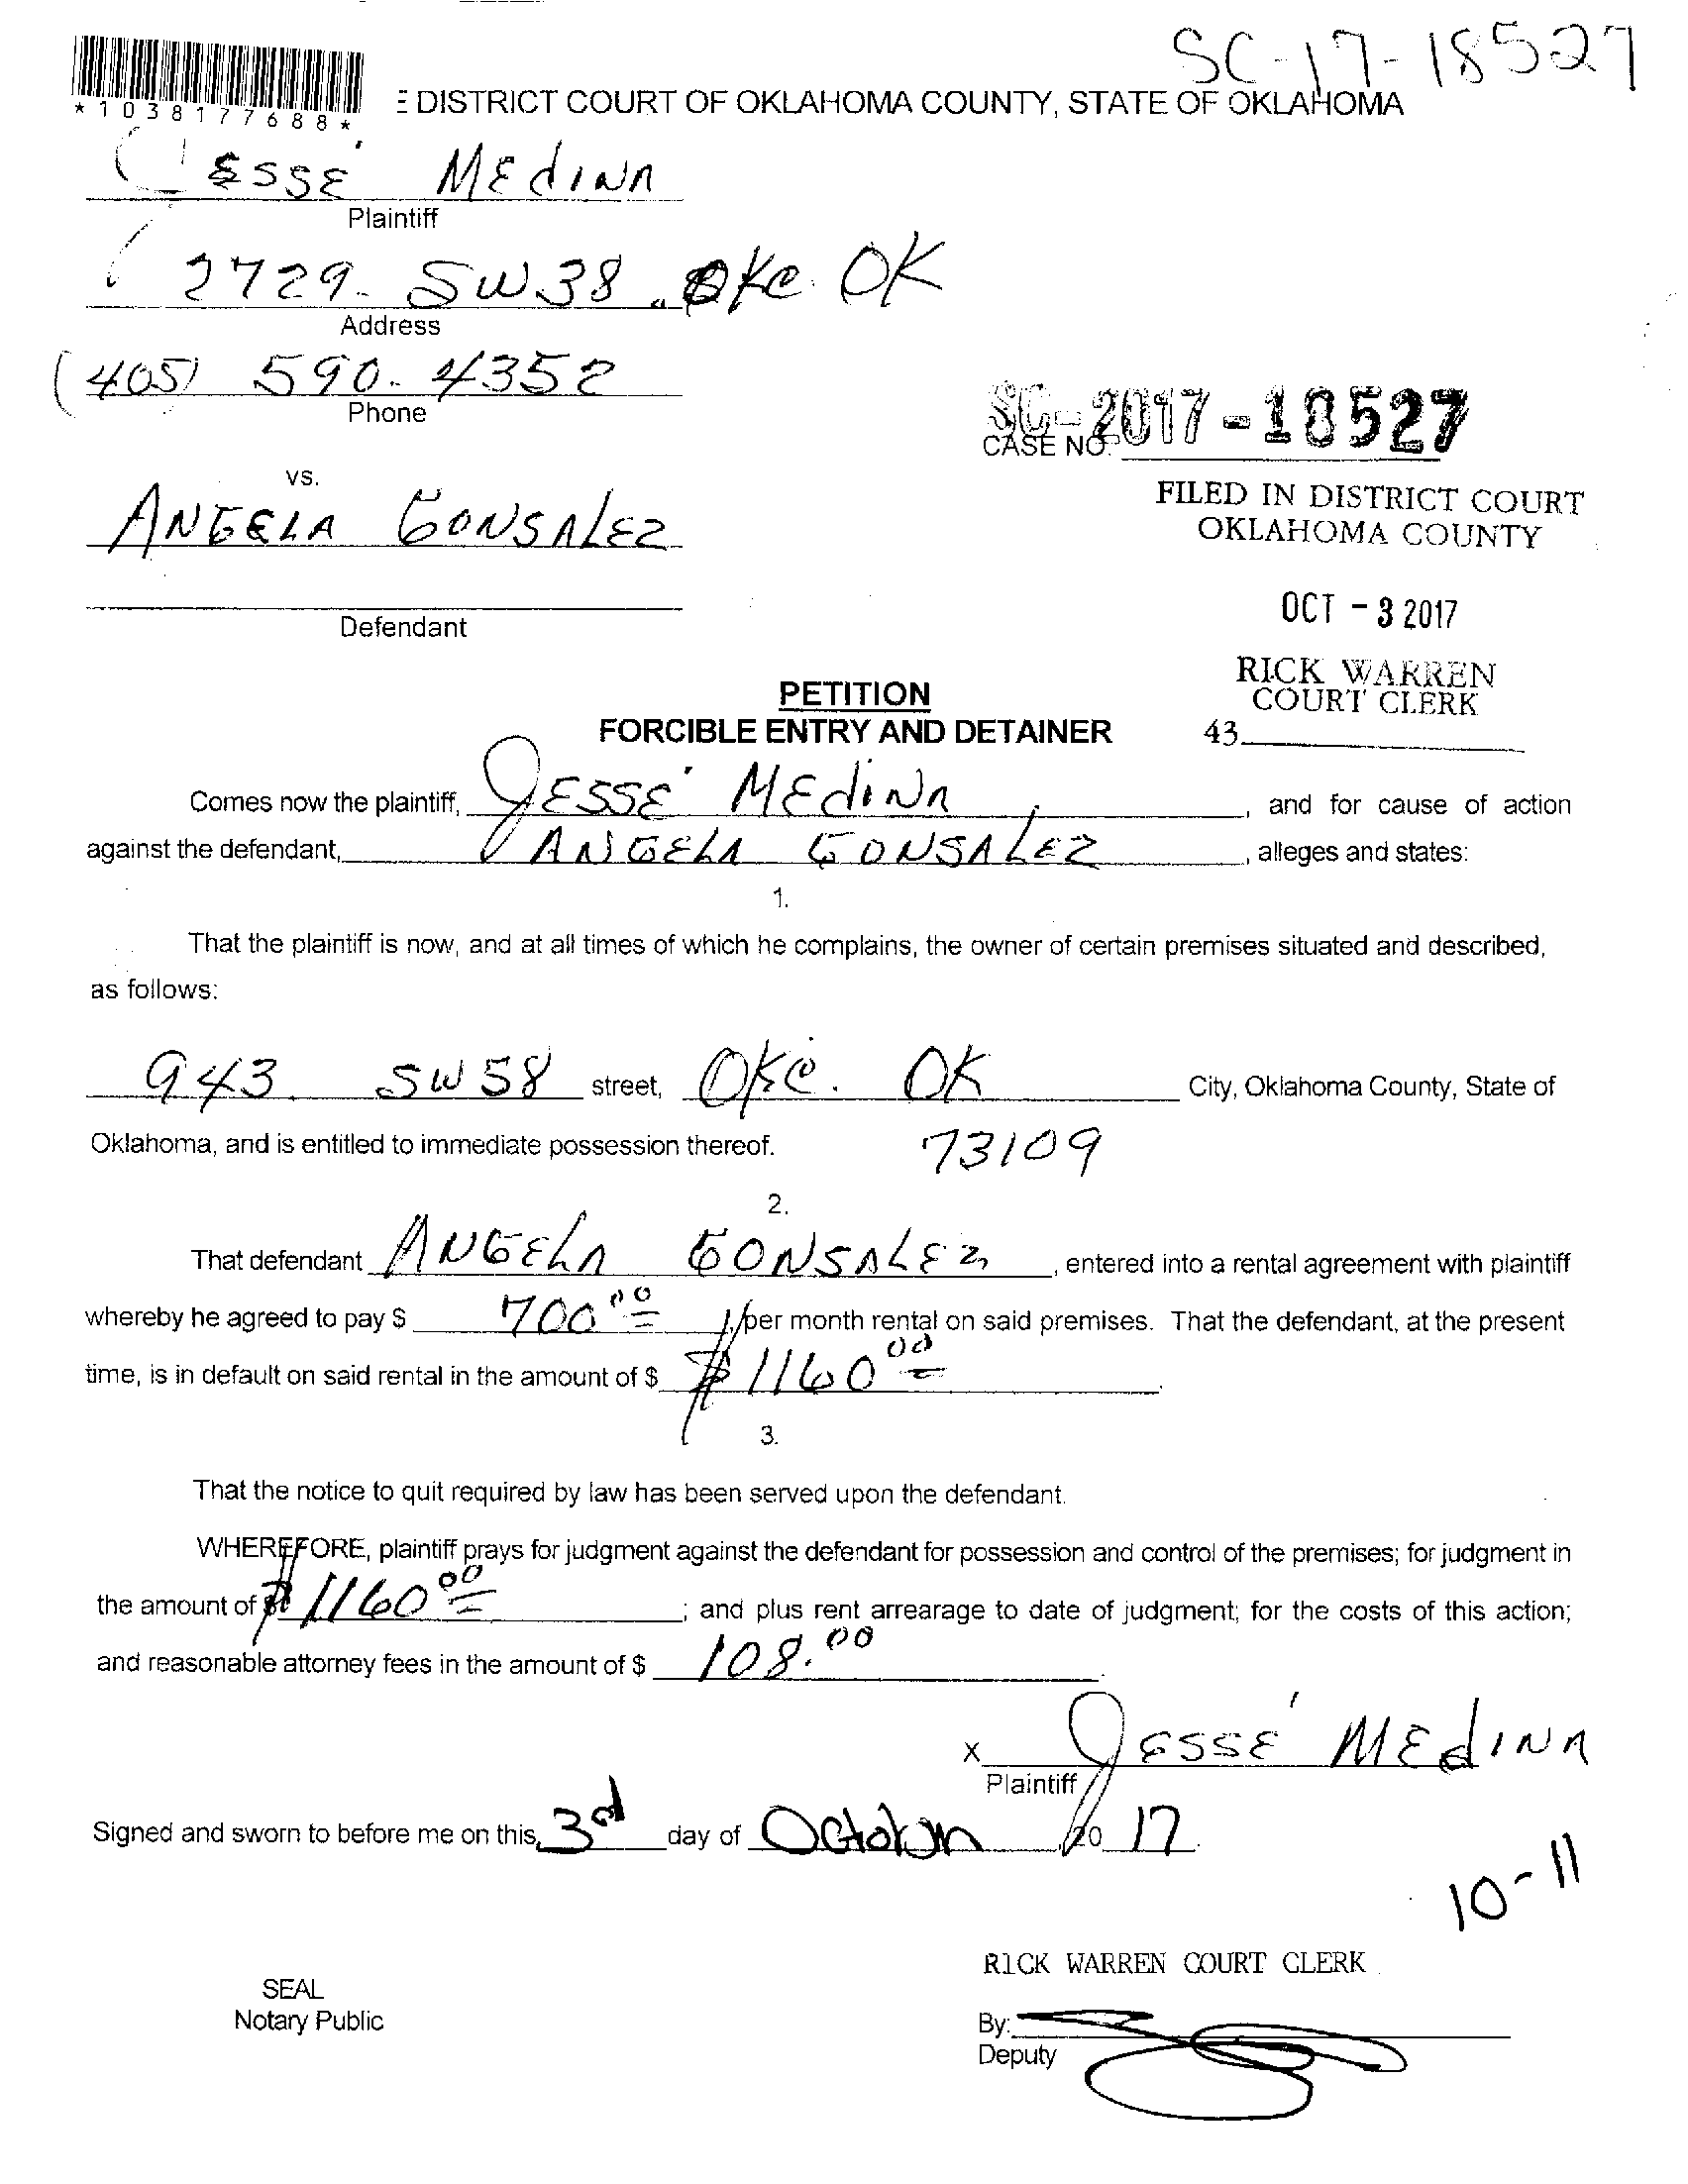 SC-17-18527
*1038177688*
E DISTRICT COURT OF OKLAHOMA COUNTY, STATE OF OKLAHOMA
JESSE' MEdINA
Plaintiff
2729- SW 38. OKC. OK
Address
(405) 590-4352
Phone
SC-2017-18527
CASE NO.
vs.
ANGELA GONSALEZ
FILED IN DISTRICT COURT
OKLAHOMA COUNTY
OCT - 3 2017
Defendant
RICK WARREN
COURT CLERK
43
PETITION
FORCIBLE ENTRY AND DETAINER
Comes now the plaintiff, JESSE' MEdINA, and for cause of action
against the defendant, ANGELA GONSALEZ, alleges and states:
1.
That the plaintiff is now, and at all times of which he complains, the owner of certain premises situated and described,
as follows:
943 SW 58 street, OKC. OK City, Oklahoma County, State of
Oklahoma, and is entitled to immediate possession thereof. 73109
2.
That defendant ANGELA GONSALEZ, entered into a rental agreement with plaintiff
whereby he agreed to pay $ 700.00 per month rental on said premises. That the defendant, at the present
time, is in default on said rental in the amount of $ $1160.00.
3.
That the notice to quit required by law has been served upon the defendant.
WHEREFORE, plaintiff prays for judgment against the defendant for possession and control of the premises; for judgment in
the amount of $ 1160.00; and plus rent arrearage to date of judgment; for the costs of this action;
and reasonable attorney fees in the amount of $ 108.00.
X JESSE' MEdINA
Plaintiff
Signed and sworn to before me on this 3rd day of October, 20 17.
10-11
RICK WARREN COURT CLERK
SEAL
Notary Public
By:
Deputy